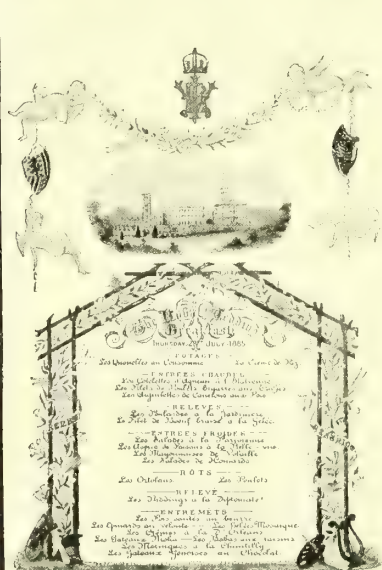 Royal Wedding
Breakfast
THURSDAY 23RD JULY 1885
POTAGES
Les Quenelles au Consommé La Crème de Riz
ENTRÉES CHAUDES
Les Côtelettes d'Agneau à l'Italienne
Les Filets de aux
Les Aiguillettes de Canetons aux Pois
RELEVÉS
Les Poulardes à la Jardinière
Le Filet de Boeuf braisé à la Gelée
ENTRÉES FROIDES
Les Salades à la Parisienne
Les à la Belle vue
Les Mayonnaises de Volaille
Les Salades de Homards
RÔTS
Les Ortolans Les Poulets
RELEVÉ
Les Puddings à la Diplomate
ENTREMETS
Les
Les Épinards au velouté
Les Crèmes à la Orléans
Les Gateaux Moka Les Babas aux raisins
Les Meringues à la Chantilly
Les Gateaux Génoises au Chocolat